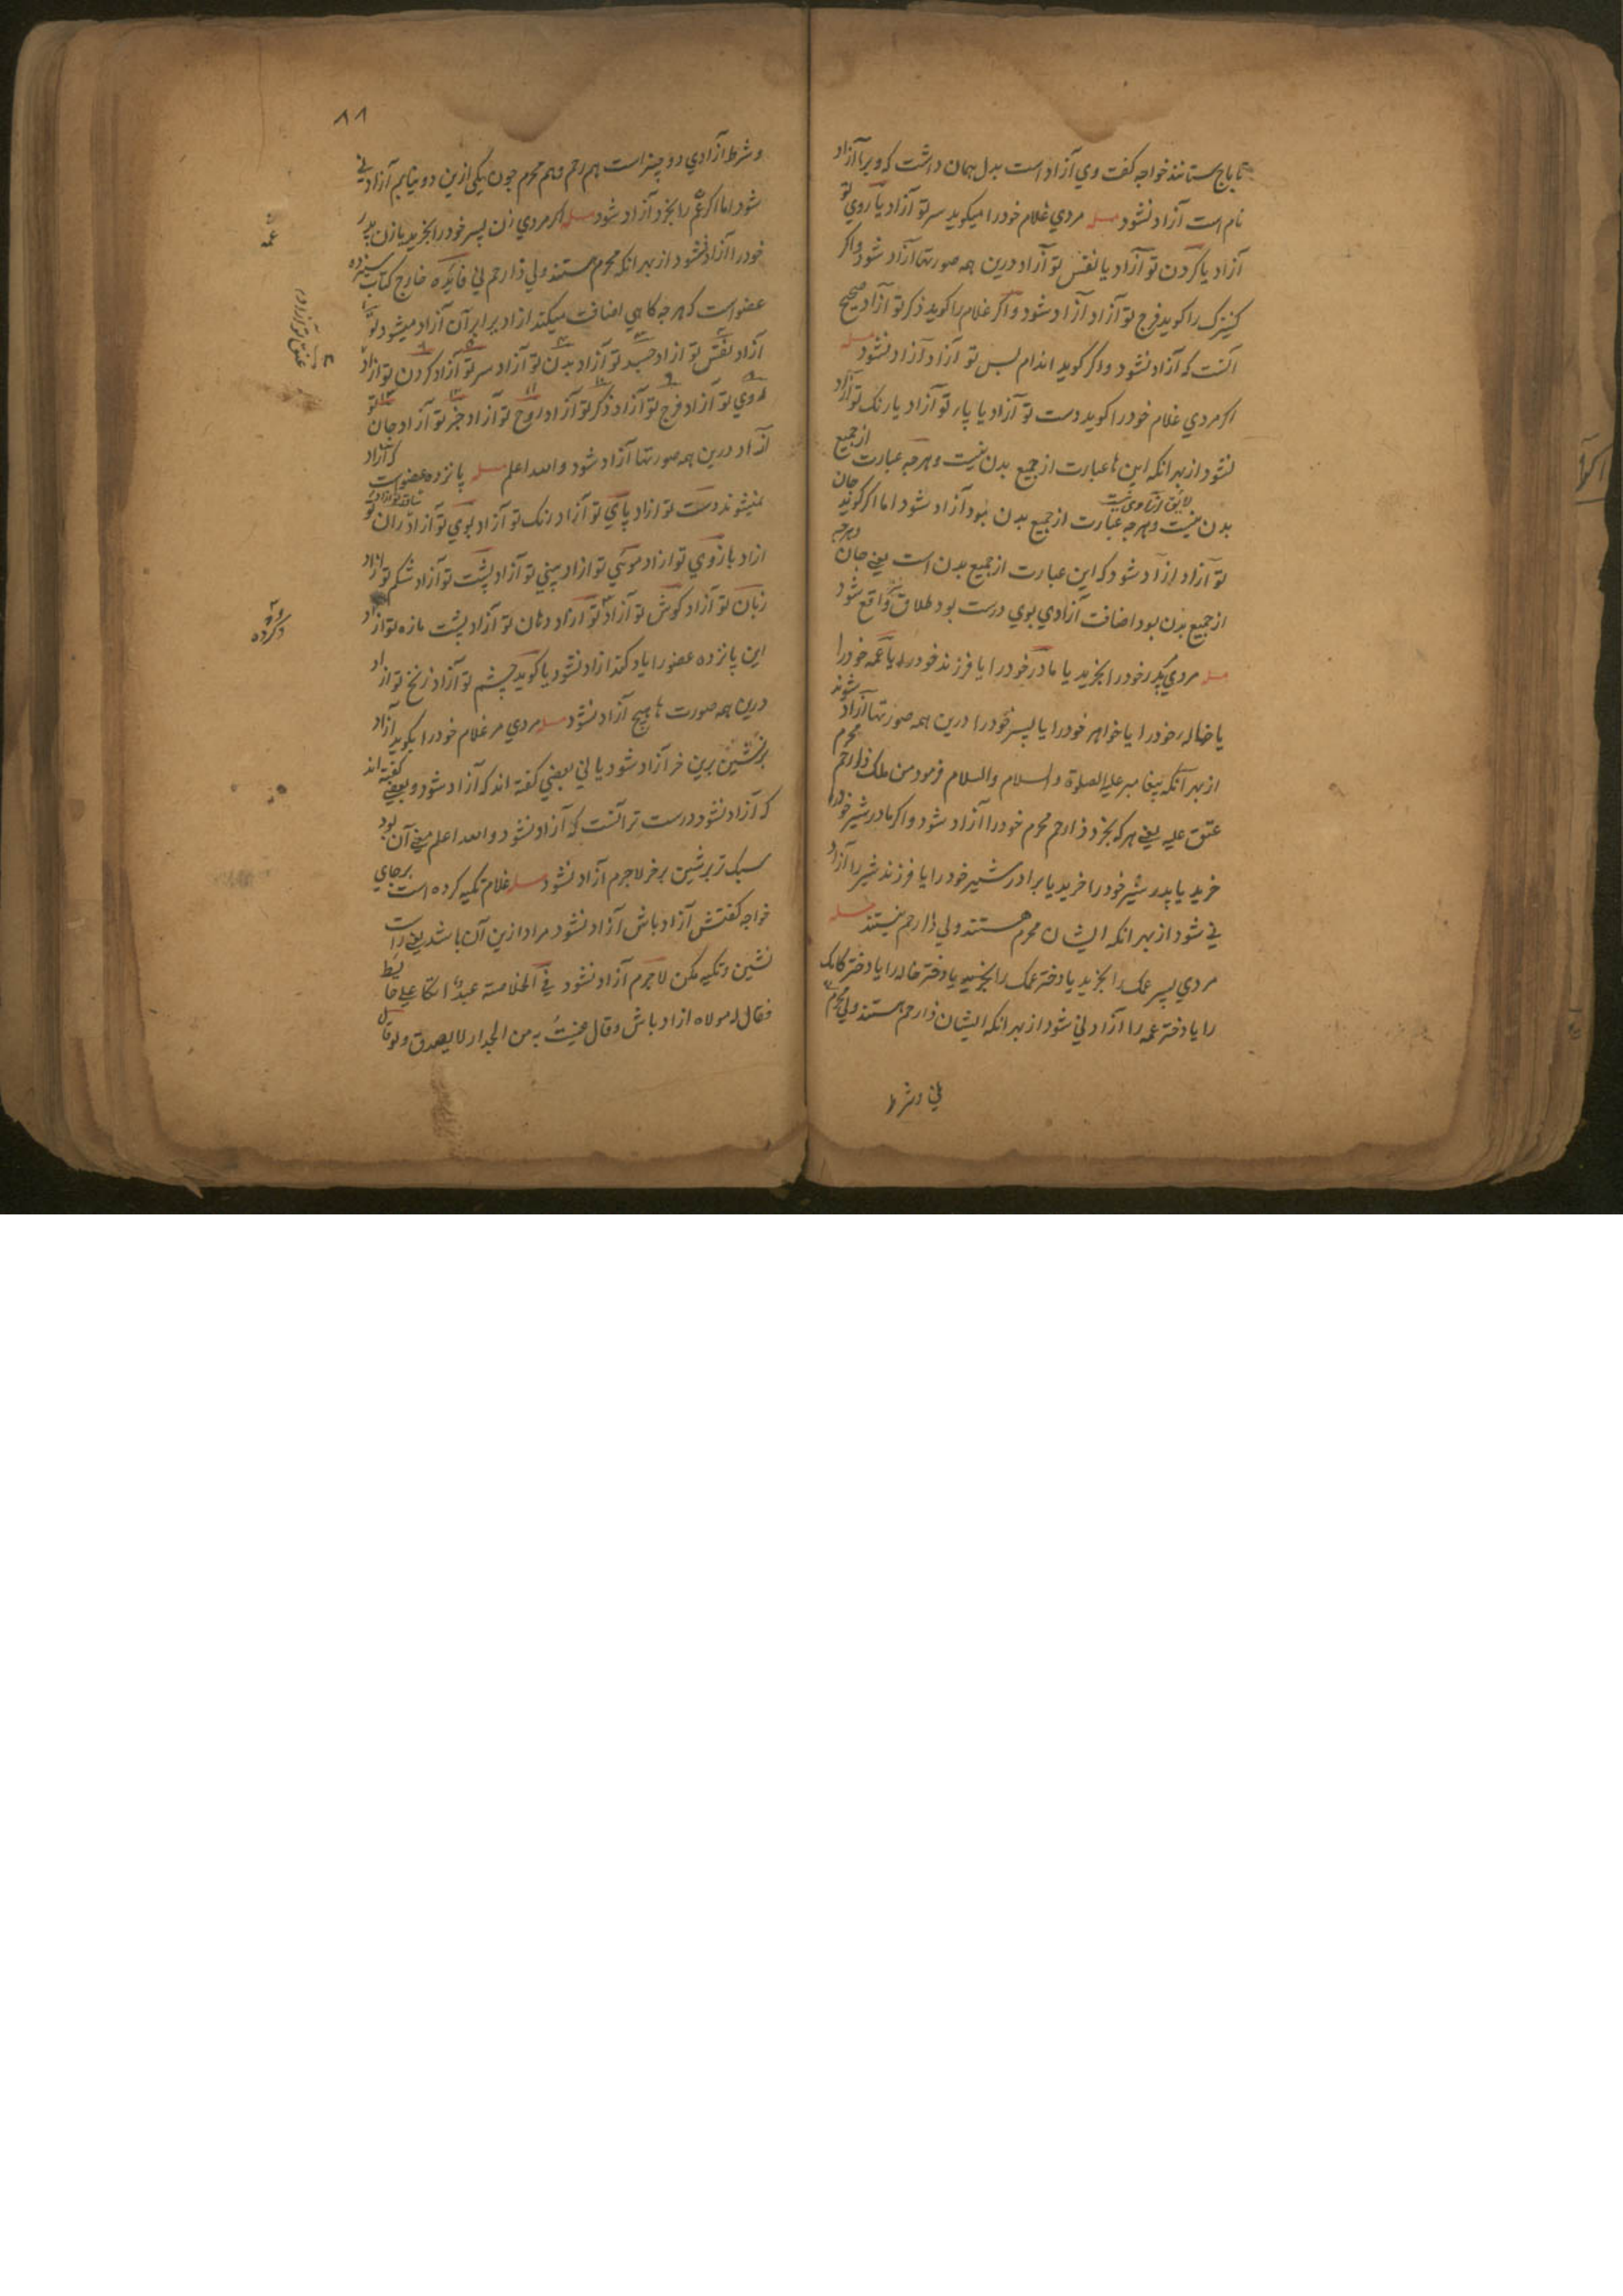 تا باج نستانند خواجه کفت وي آزاد است بدل همان داشت که ویرا آزاد
نام است آزاد نشود مسله مردي غلام خود را میکوید سر تو آزاد یا روي تو
آزاد یا کردن تو آزاد یا نفس تو آزاد درین همه صورتها آزاد شود واکر
کنیزک را کوید فرج تو آزاد آزاد شود و اکر غلام را کوید ذکر تو آزاد صحیح
آنست که آزاد نشود و اکر کوید اندام پس تو آزاد آزاد نشود مسله
اکر مردي غلام خود را کوید دست تو آزاد یا پار تو آزاد یا رنک تو آزاد
نشود از بهر آنکه این ها عبارت از جمیع بدن نیست و هرچه عبارت از جمیع
بدن نیست و هرچه عبارت از جمیع بدن بود آزاد شود اما اکر کوید جان
تو آزاد آزاد شود که این عبارت از جمیع بدن است یعني جان وهرچه
از جمیع بدن بود اضافت آزادي بوي درست بود طلاق واقع شود
مسله مردي پدر خود را بخرید یا مادر خود را یا فرزند خود را یا عمه خود را
یا خاله خود را یا خواهر خود را یا پسر خود را درین همه صورتها آزاد شوند
از بهر آنکه پیغامبر علیه الصلوة والسلام والسلام فرمود من ملک ذا رحم محرم
عتق علیه یعني هر که بخرد ذا رحم محرم خود را آزاد شود و اکر مادر شیر خود را
خرید یا پدر شیر خود را خرید یا برادر شیر خود را یا فرزند شیر را آزاد
ني شود از بهر آنکه ایشان محرم هستند ولي ذا رحم نیستند مسله
مردي پسر عمک را بخرید یا دختر عمک را بخرید یا دختر خاله را یا دختر کاکک
را یا دختر عمه را آزاد ني شود از بهر آنکه ایشان ذا رحم هستند ولي محرم
ني وشرط
۸۸
وشرط آزادي دو چیز است هم رحم وهم محرم چون یکي ازین دو نیابم آزاد ني
شود اما اکر عم را بخرد آزاد شود مسله اکر مردي زن پسر خود را بخرید یا زن پدر
خود را آزاد نشود از بهر آنکه محرم هستند ولي ذا رحم ني فایده خارج کتاب سیزده
عضو است که هرچه کاهي اضافت میکند آزاد برابر آن آزاد میشود
آزاد نفس تو آزاد جسد تو آزاد بدن تو آزاد سر تو آزاد کردن تو آزاد
روي تو آزاد فرج تو آزاد ذکر تو آزاد روح تو آزاد جز تو آزاد جان تو
آزاد درین همه صورتها آزاد شود والله اعلم مسله پانزده عضو است که آزاد
نمیشوند دست تو آزاد پاي تو آزاد رنک تو آزاد بوي تو آزاد ران تو
آزاد بازوي تو آزاد موئي تو آزاد بیني تو آزاد پشت تو آزاد شکم تو آزاد
زبان تو آزاد کوش تو آزاد تو آزاد دهان تو آزاد پشت مازه تو آزاد
این پانزده عضو را یاد کند آزاد نشود یا کوید چشم تو آزاد زنخ تو آزاد
درین همه صورت ها هیچ آزاد نشود مسله مردي مر غلام خود را بکوید آزاد
برنشین برین خر آزاد شود یا ني بعضي کفته اند که آزاد شود و بعضي کفته اند
که آزاد نشود درست تر آنست که آزاد نشود والله اعلم معني آن بود
سبک تر برنشین بر خر لاجرم آزاد نشود مسله غلام تکیه کرده است برجاي
خواجه کفتش آزاد باش آزاد نشود مراد ازین آن باشد یعني راست
نشین و تکیه مکن لاجرم آزاد نشود في الخلاصة عبد اتکا علي حایط
فقال له مولاه آزاد باش وقال عنیت به من الجدار لا یصدق ولو قال
عمه